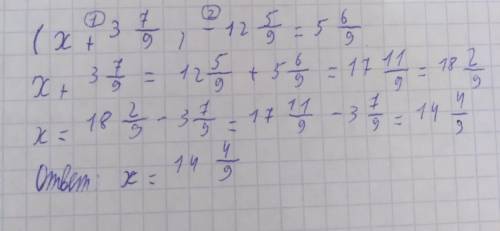 ① ②
( x + 3 7/9 ) - 12 5/9 = 5 6/9
x + 3 7/9 = 12 5/9 + 5 6/9 = 17 11/9 = 18 2/9
x = 18 2/9 - 3 7/9 = 17 11/9 - 3 7/9 = 14 4/9
Ответ: x = 14 4/9